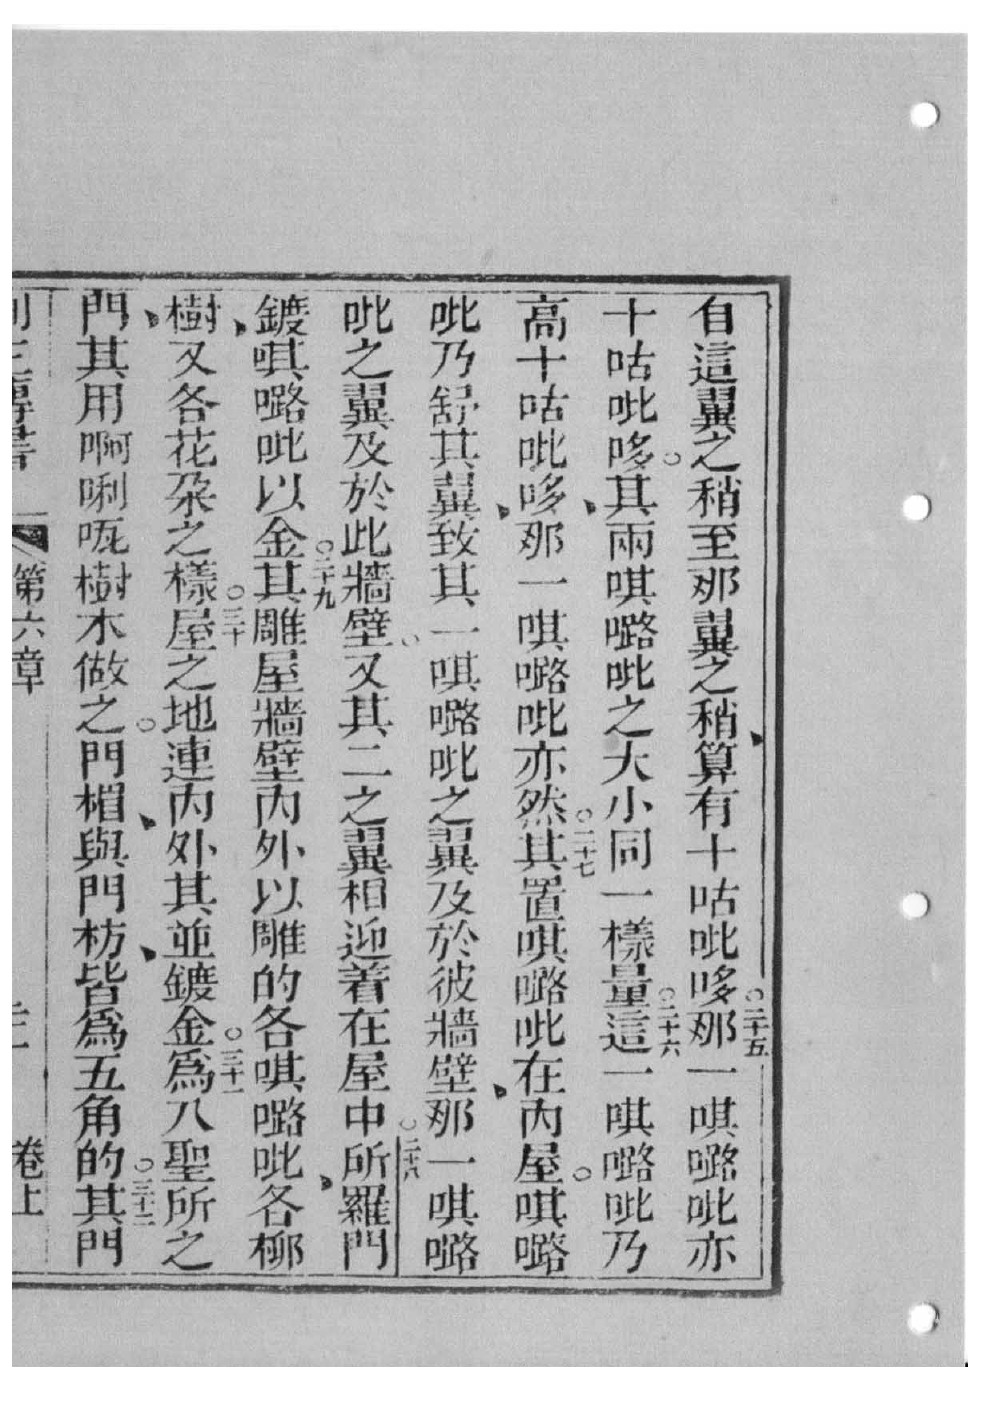 自這翼之稍至那翼之稍算有十咕吡哆○二十五那一唭嚕吡亦
十咕吡哆。其兩唭嚕吡之大小同一樣○二十六量這一唭嚕吡乃
高十咕吡哆、那一唭嚕吡亦然○二十七其置唭嚕吡在內屋。唭嚕
吡乃舒其翼、致其一唭嚕吡之翼及於彼牆壁、那一唭嚕
吡之翼及於此牆壁。又其二之翼相迎着在屋中○二十八所羅門
鍍唭嚕吡以金○二十九其雕屋牆壁內外以雕的各唭嚕吡、各柳
樹、又各花朶之樣○三十屋之地連內外其並鍍金○三十一爲入聖所之
門、其用啊唎𠯈樹木做之。門楣、與門枋、皆爲五角的○三十二其門
第六章
卷上